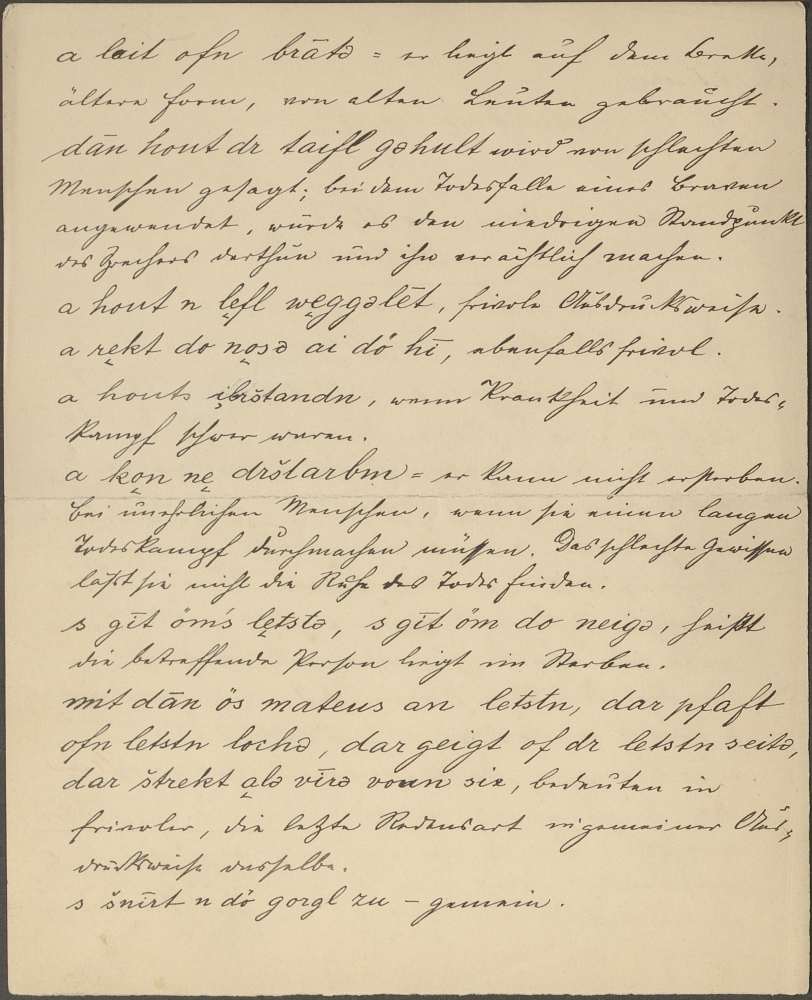 a lait ofn brātə = er liegt auf dem Brette,
ältere Form, von alten Leuten gebraucht.
dān hout dr taifl gəhult wird von schlechten
Menschen gesagt; bei dem Todesfalle eines Braven
angewendet, würde es den niedrigen Standpunkt
des Sprechers darthun und ihn verächtlich machen.
a hout n lęfl węggəlēt, frivole Ausdrucksweise.
a rękt do nǫsə ai dö hī, ebenfalls frivol.
a houts ibrštandn, wenn Krankheit und Todes-
kampf schwer waren.
a kǫn nę drštarbm = er kann nicht ersterben.
Bei unehrlichen Menschen, wenn sie einen langen
Todeskampf durchmachen müssen. Das schlechte Gewissen
läßt sie nicht die Ruhe des Todes finden.
s gīt öm's lętstə, s gīt öm do neigə, heißt
die betreffende Person liegt im Sterben.
mit dān ös mateus an letstn, dar pfaft
ofn letstn lochə, dar geigt of dr letstn seitə,
dar štrekt ąlə vīrə voun siə, bedeuten in
frivoler, die letzte Redensart in gemeiner Aus-
drucksweise dasselbe.
s šnīrt n dö gorgl zu – gemein.